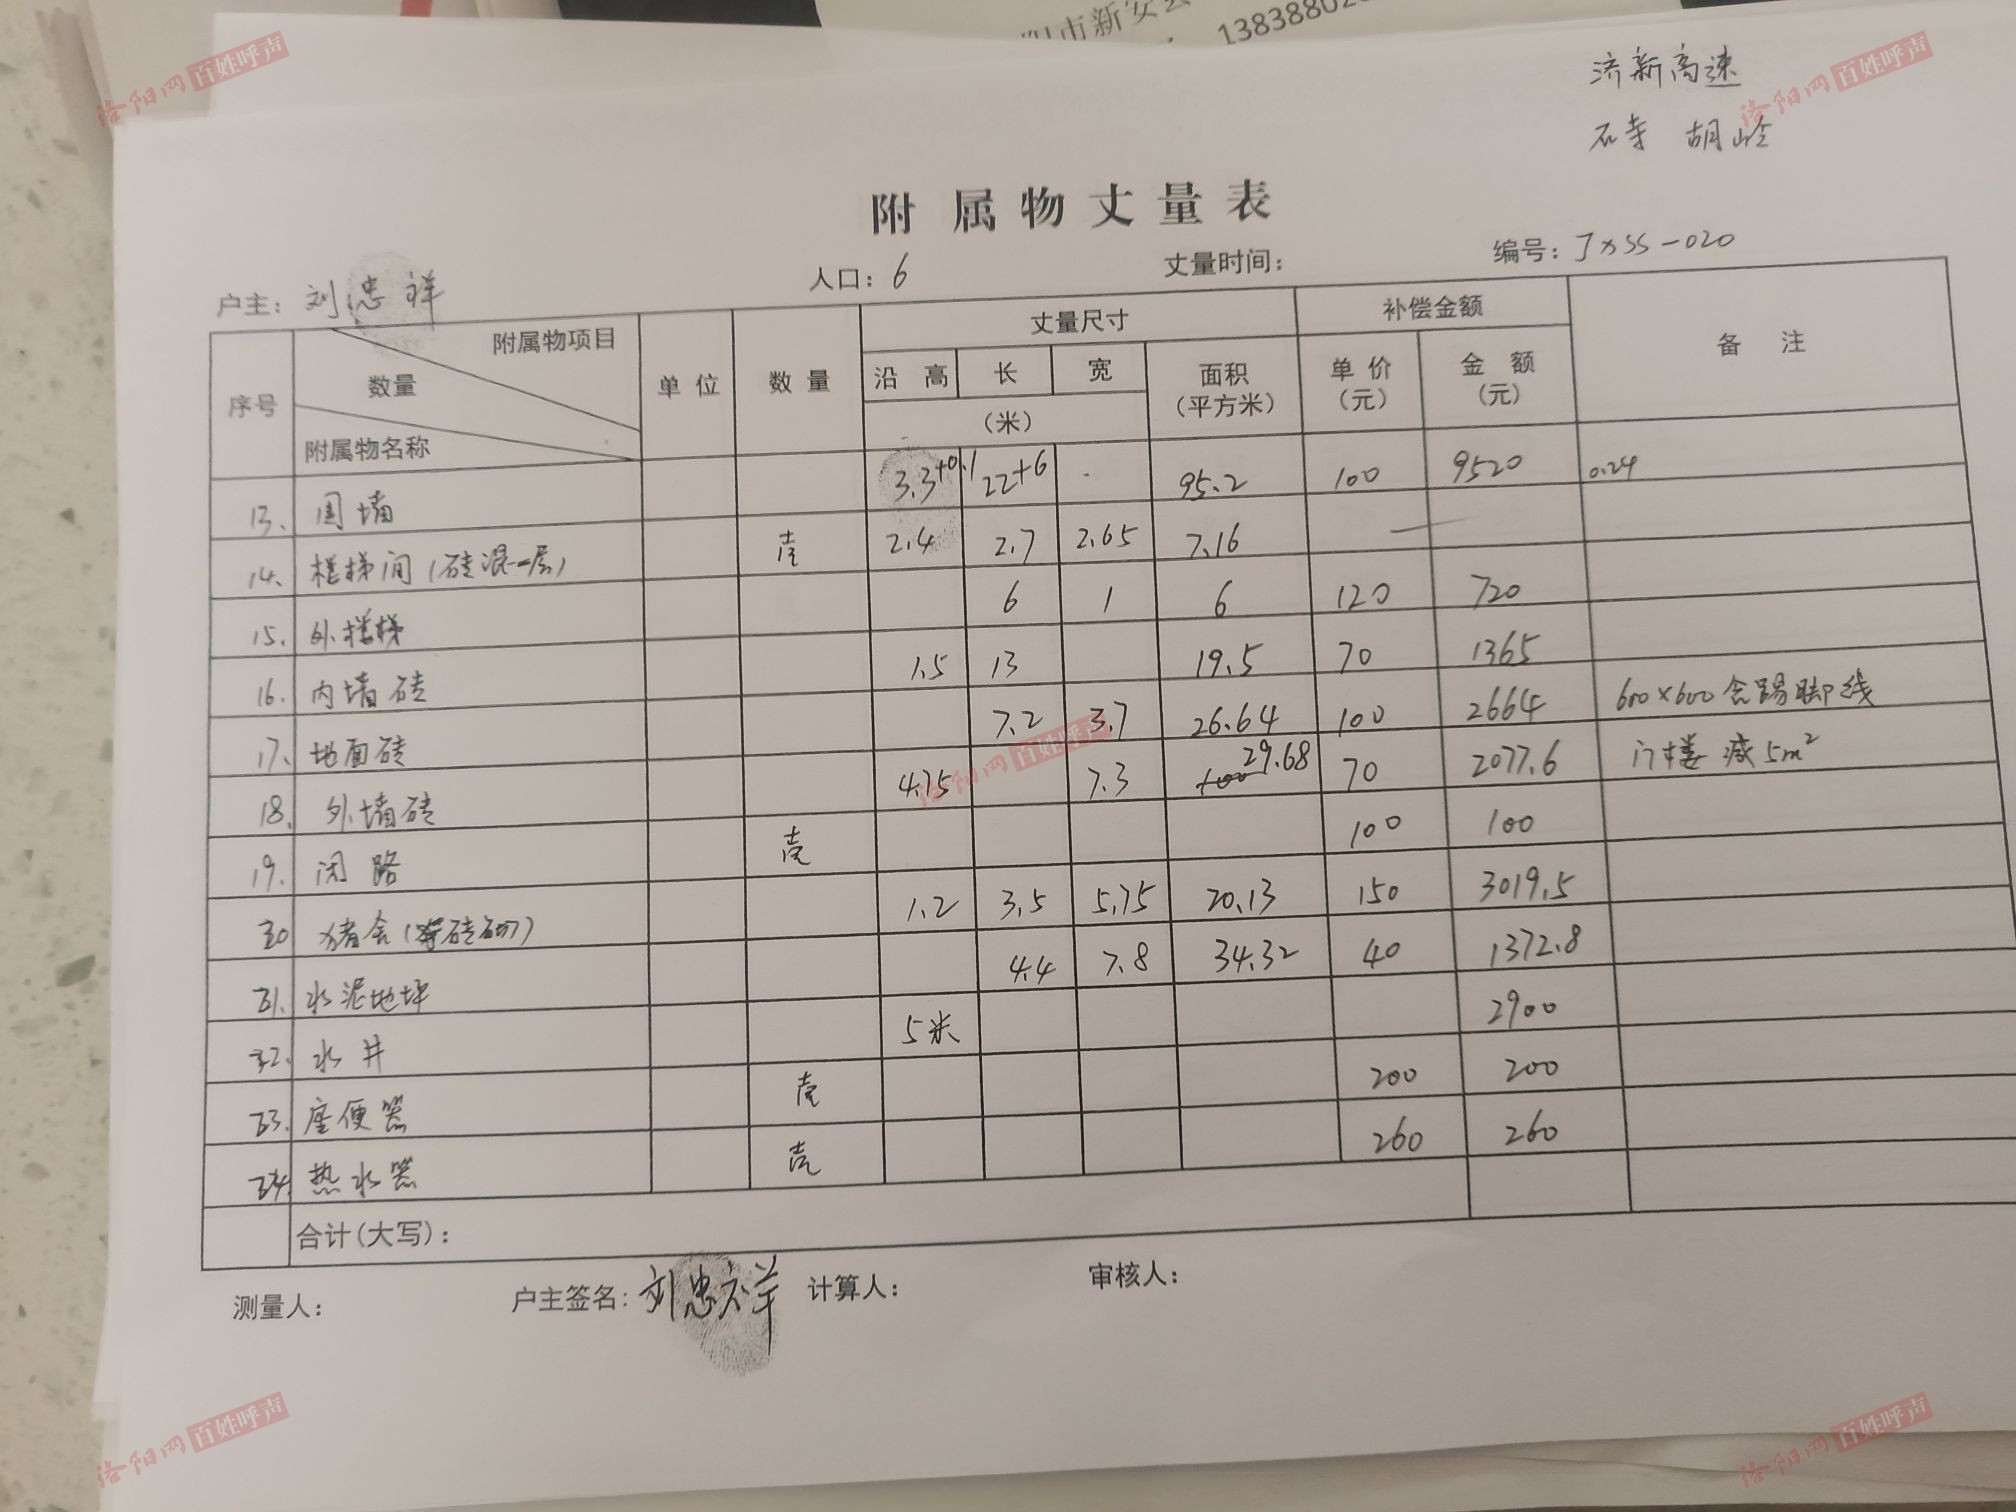 阳市新安县
13838802
济新高速
石寺 胡岭
附属物丈量表
户主：刘忠祥 人口：6 丈量时间： 编号：JXSS-020
序号 附属物项目 数量 附属物名称 单位 数量 丈量尺寸 补偿金额 备注
沿高 长 宽 面积（平方米） 单价（元） 金额（元）
（米）
13. 围墙 3.3+0.1 22+6 95.2 100 9520 0.24
14. 楼梯间（砖混一层） 壹 2.4 2.7 2.65 7.16 —
15. 外楼梯 6 1 6 120 720
16. 内墙砖 1.5 13 19.5 70 1365
17. 地面砖 7.2 3.7 26.64 100 2664 600×600含踢脚线
18. 外墙砖 4.75 7.3 29.68 70 2077.6 门楼减5m²
19. 闭路 壹 100 100
20 猪舍（砖砌） 1.2 3.5 5.75 20.13 150 3019.5
21. 水泥地坪 4.4 7.8 34.32 40 1372.8
22. 水井 5米 2900
23. 座便器 壹 200 200
24. 热水器 壹 260 260
合计（大写）：
测量人： 户主签名：刘忠祥 计算人： 审核人：
洛阳网 百姓呼声
洛阳网 百姓呼声
洛阳网 百姓呼声
洛阳网 百姓呼声
洛阳网 百姓呼声